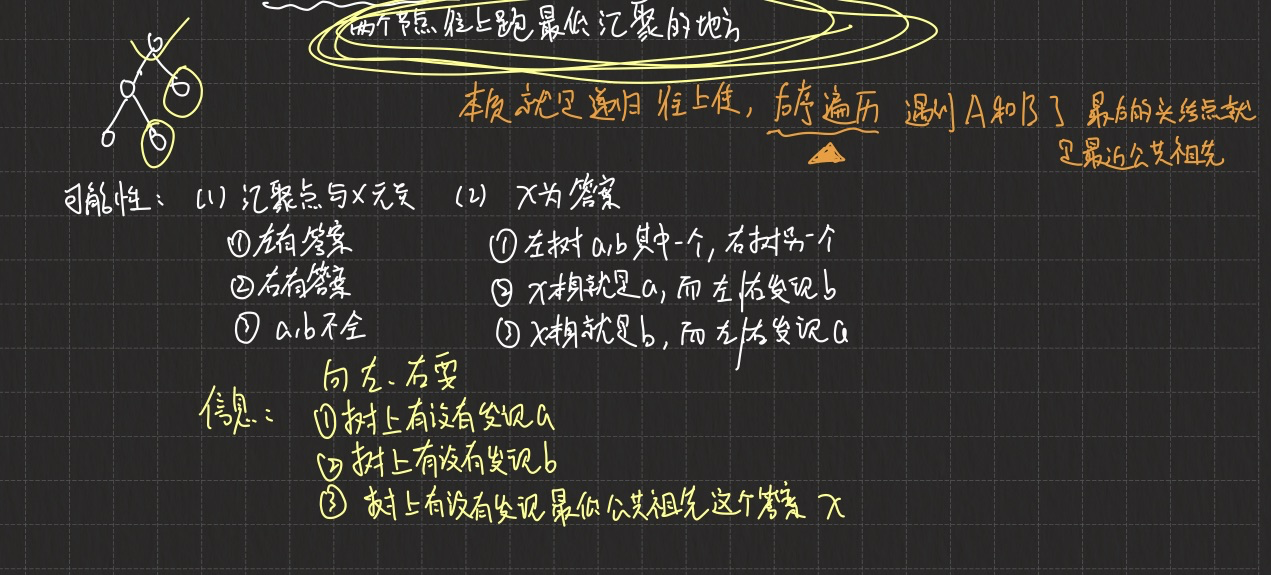 两个节点往上跑最低汇聚的地方
本质就是递归往上传，后序遍历 遇到A和B了 最后的头结点就
是最近公共祖先
可能性： (1) 汇聚点与x无关 (2) x为答案
①左有答案 ①左树a,b其中一个，右树另一个
②右有答案 ②x本身就是a，而左/右发现b
③ a,b不全 ③x本身就是b，而左/右发现a
向左、右要
信息： ①树上有没有发现a
②树上有没有发现b
③ 树上有没有发现最低公共祖先这个答案 x